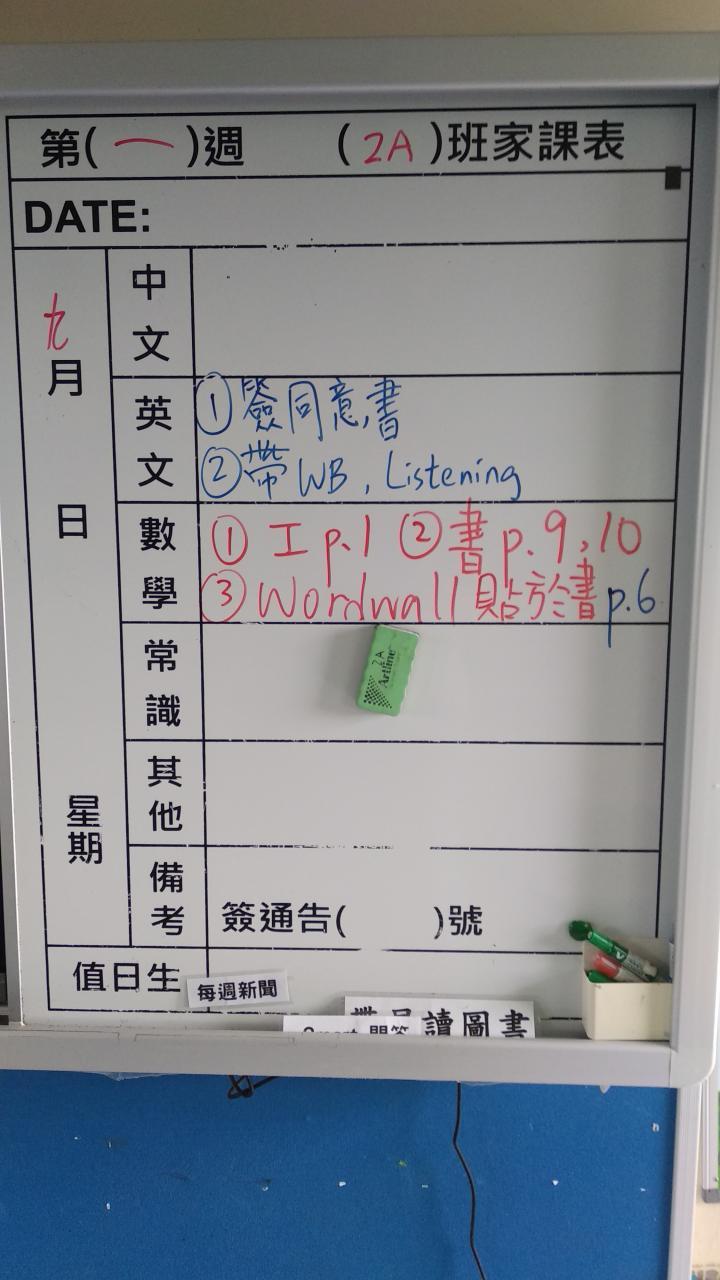 第(一)週 (2A)班家課表
DATE:
九月 日 星期
中文
英文
①簽同意書
②帶WB, Listening
數學
① 工 p.1 ② 書 p.9,10
③ Wordwall 貼於書 p.6
常識
2A
Artline
其他
備考
簽通告( )號
值日生
每週新聞
讀圖書